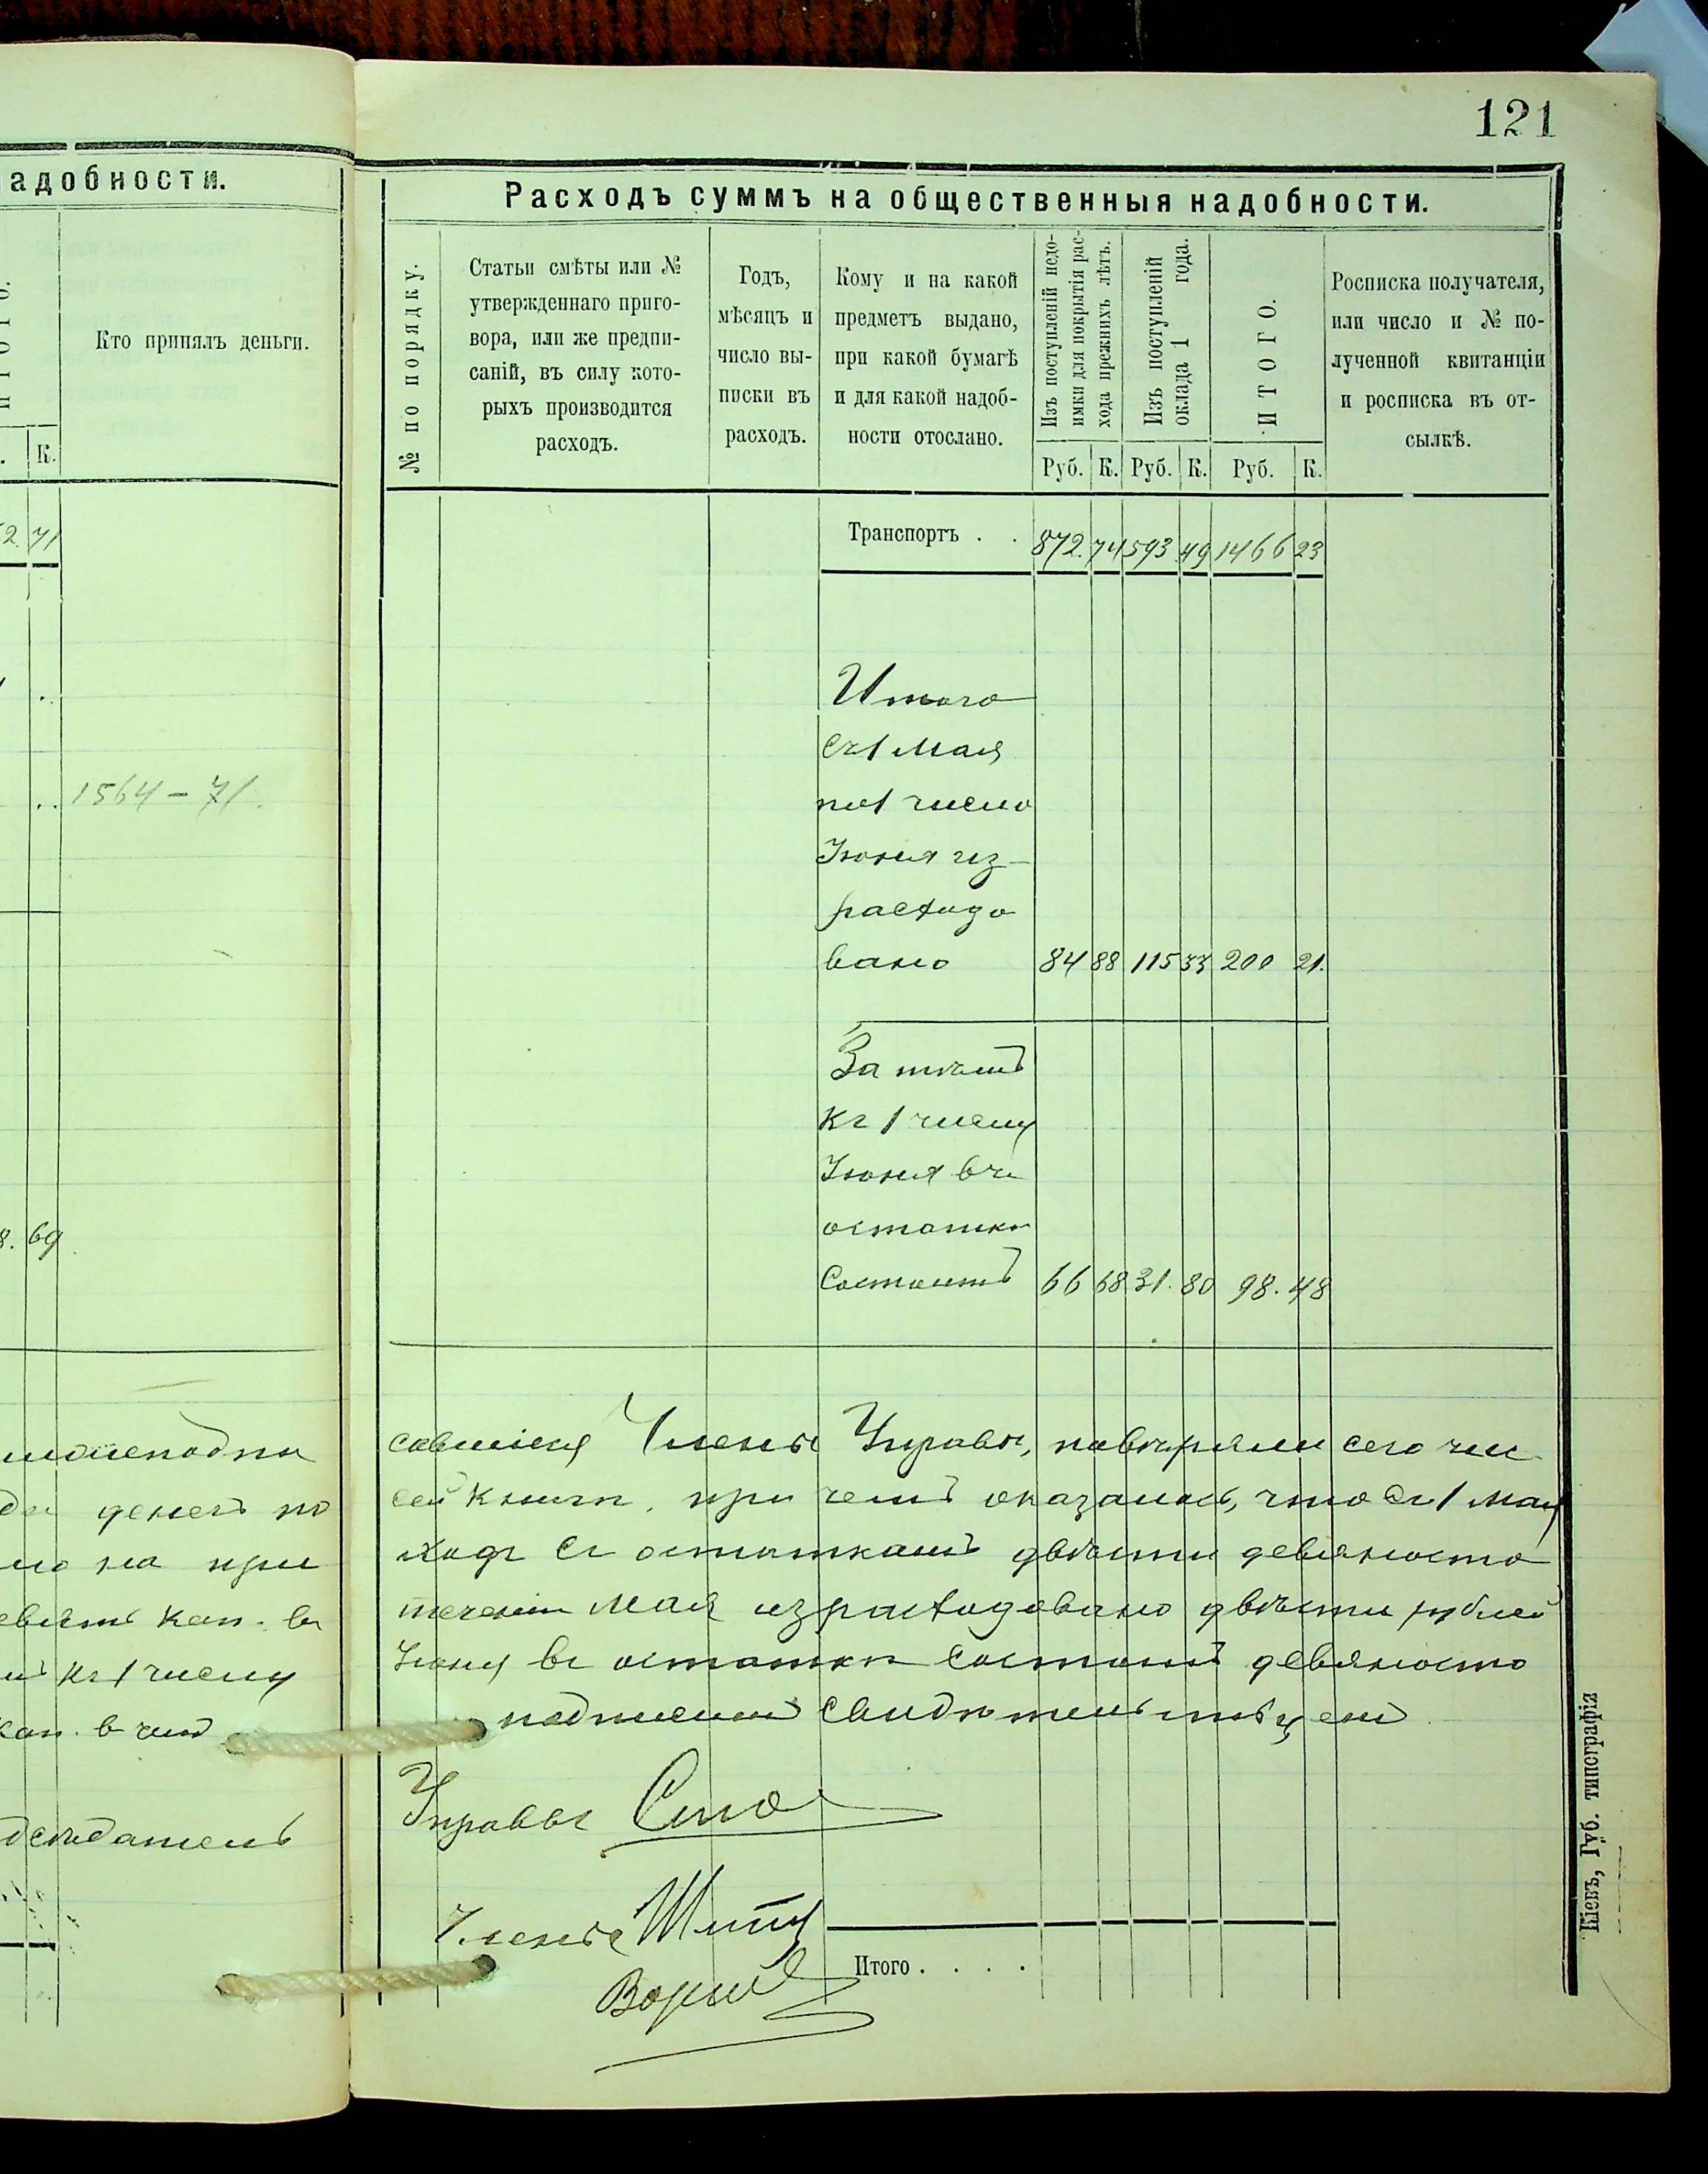 адобности.
Кто принялъ деньги.
К.
2. 71
1564 - 71.
8. 69
денегъ по
но на при
кап. въ
къ 1 числу
121
Расходъ суммъ на общественныя надобности.
№ по порядку.
Статьи смѣты или №
утвержденнаго приго-
вора, или же предпи-
саній, въ силу кото-
рыхъ производится
расходъ.
Годъ,
мѣсяцъ и
число вы-
писки въ
расходъ.
Кому и на какой
предметъ выдано,
при какой бумагѣ
и для какой надоб-
ности отослано.
Изъ поступленій недо-
имки для покрытія рас-
хода прежнихъ лѣтъ.
Изъ поступленій
оклада 1 года.
ИТОГО.
Росписка получателя,
или число и № по-
лученной квитанціи
и росписка въ от-
сылкѣ.
Руб. К. Руб. К. Руб. К.
Транспортъ . . 872. 74 593 49 1466 23
Итого
Съ 1 Мая
по 1 число
Іюня из-
расходо
вано 84 88 115 33 200 21.
За тѣмъ
къ 1 числу
Іюня въ
остатки
Состоитъ 66 68 31. 80 98. 48
савшіеся Члены Управы, повѣряли сего чис
сей книги, при чемъ оказалось, что съ 1 Мая
ходъ съ остаткомъ двѣсти девяносто
теченіи Мая израсходовано двѣсти рублей
Іюня въ остатки состоитъ девяносто
подписомъ свидѣтельствуемъ
Управы
Члены
Итого . . . .
Кіевъ, Губ. типографія